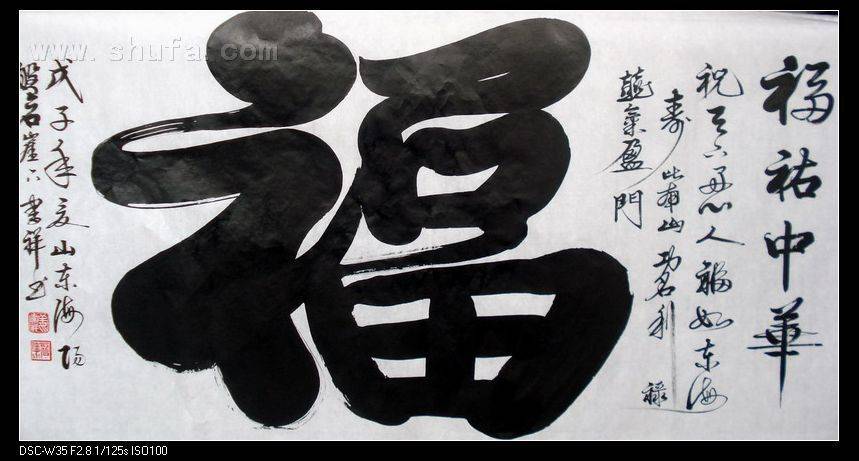 福祐中華
祝天下心人福如东海
寿比南山功名利禄
囍氣盈門
福
戊子年夏山东海阳
盤石崖下書祥书
www.shufa.com
DSC-W35 F2.8 1/125s ISO100